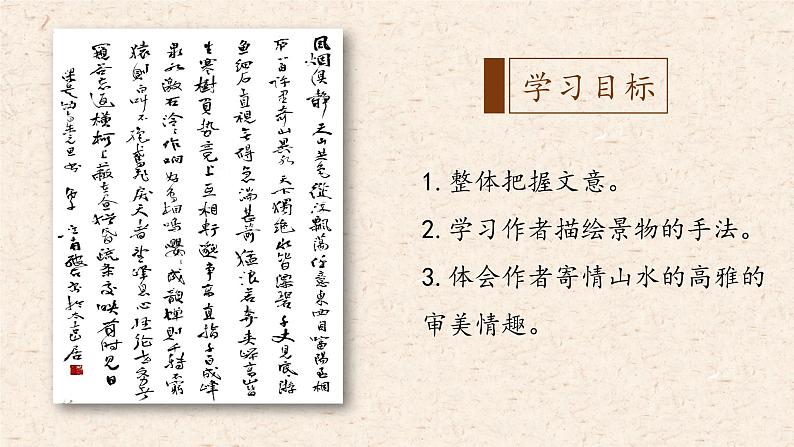 風烟俱静天山共色從江飄蕩任意東西自富陽至桐
百许里奇山異水天下獨绝水皆缥碧千丈見底游
鱼细石直視無碍急湍甚箭猛浪若奔夹峰高山皆
生寒樹負势竞上互相軒邈争高直指千百成峰
泉水激石泠泠作响好鸟相鳴嘤嘤成韻蝉則千轉不窮
猿則百叫不绝鸢飛戾天者望峰息心经纶世務者
窺谷忘返横柯上蔽在昼猶昏疏条交映有时見日
学习目标
1.整体把握文意。
2.学习作者描绘景物的手法。
3.体会作者寄情山水的高雅的
审美情趣。